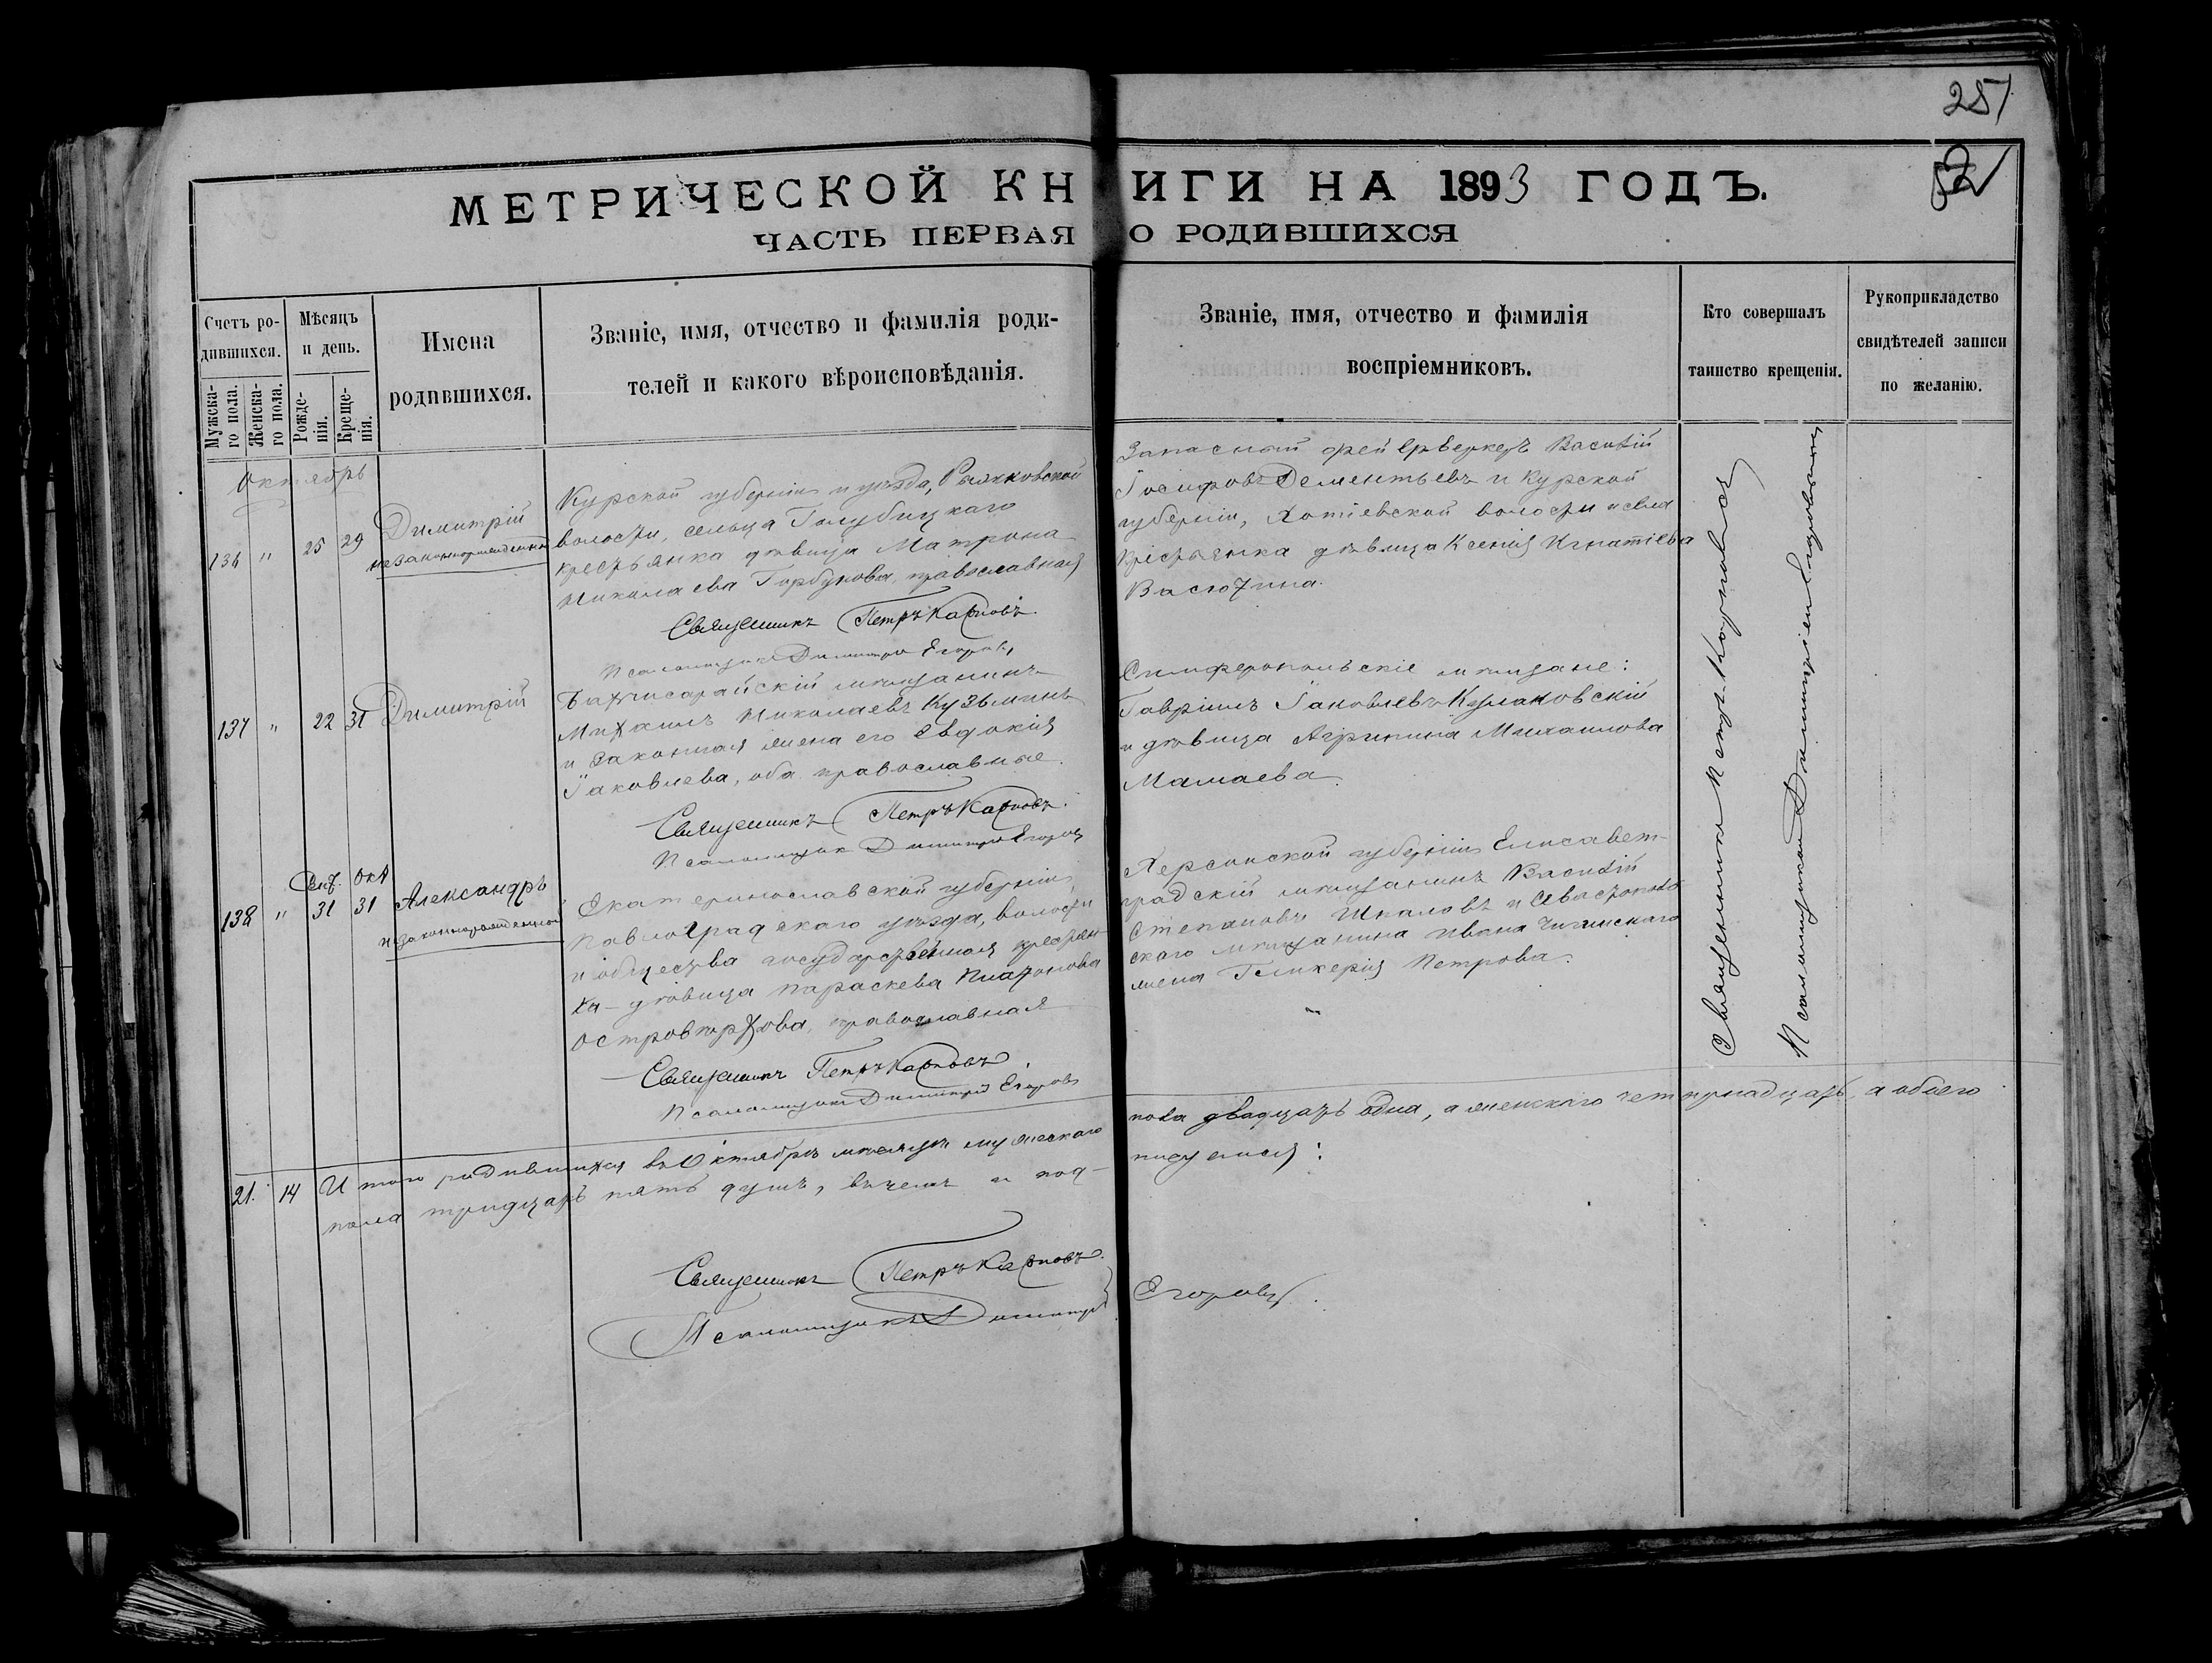 251
52
МЕТРИЧЕСКОЙ КНИГИ НА 1893 ГОДЪ.
ЧАСТЬ ПЕРВАЯ О РОДИВШИХСЯ
Счетъ ро-
дившихся.
Мужска-
го пола.
Женска-
го пола.
Мѣсяцъ
и день.
Рожде-
нія.
Креще-
нія.
Имена
родившихся.
Званіе, имя, отчество и фамилія роди-
телей и какого вѣроисповѣданія.
Званіе, имя, отчество и фамилія
воспріемниковъ.
Кто совершалъ
таинство крещенія.
Рукоприкладство
свидѣтелей записи
по желанію.
Октябрь
136 " 25 29
Димитрій
незаконнорожденный
Курской губерніи и уѣзда, Рыжковской
волости, сельца Голубицкаго
крестьянка дѣвица Матрона
Николаева Горбунова, православная
Священникъ Петръ Карповъ.
Псаломщикъ Димитрій Егоровъ
Запасный фейерверкеръ Василій
Іосифовъ Дементьевъ и Курской
губерніи, Хотіевской волости и села
крестьянка дѣвица Ксенія Игнатіева
Васютина.
137 " 22 31
Димитрій
Бахчисарайскій мѣщанинъ
Михаилъ Николаевъ Кузьминъ
и законная жена его Евдокія
Іаковлева, оба православные.
Священникъ Петръ Карповъ.
Псаломщикъ Димитрій Егоровъ
Симферопольскіе мѣщане:
Гавріилъ Іаковлевъ
и дѣвица Агрипина Михаилова
Мамаева
138 " Сен. 31 Окт 31
Александръ
незаконнорожденный
Екатеринославской губерніи,
Павлоградскаго уѣзда, волости
и общества государственная крестьян-
ка - дѣвица Параскева Платонова
православная
Священникъ Петръ Карповъ.
Псаломщикъ Димитрій Егоровъ
Херсонской губерніи Елисавет-
градскій мѣщанинъ Василій
Степановъ Шкаловъ и Севастополь
скаго мѣщанина Ивана
жена Гликерія Петрова.
Священникъ Петръ Карповъ
Псаломщикъ Димитрій Егоровъ
21. 14 Итого родившихся въ Октябрѣ мѣсяцѣ мужескаго
пола двадцать одна, а женскаго четырнадцать, а обоего
пола тридцать пять душъ, въ чемъ и под-
писуемся:
Священникъ Петръ Карповъ.
Псаломщикъ Димитрій Егоровъ.